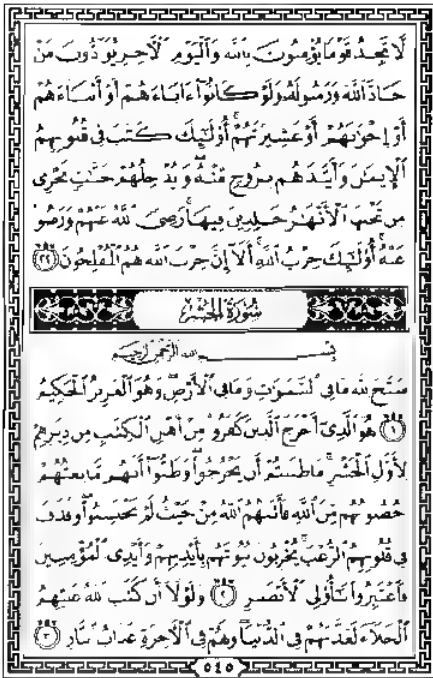 لَّا تَجِدُ قَوْمًا يُؤْمِنُونَ بِٱللَّهِ وَٱلْيَوْمِ ٱلْءَاخِرِ يُوَآدُّونَ مَنْ
حَآدَّ ٱللَّهَ وَرَسُولَهُۥ وَلَوْ كَانُوٓا۟ ءَابَآءَهُمْ أَوْ أَبْنَآءَهُمْ
أَوْ إِخْوَٰنَهُمْ أَوْ عَشِيرَتَهُمْ ۚ أُو۟لَٰٓئِكَ كَتَبَ فِى قُلُوبِهِمُ
ٱلْإِيمَٰنَ وَأَيَّدَهُم بِرُوحٍ مِّنْهُ ۖ وَيُدْخِلُهُمْ جَنَّٰتٍ تَجْرِى
مِن تَحْتِهَا ٱلْأَنْهَٰرُ خَٰلِدِينَ فِيهَا ۚ رَضِىَ ٱللَّهُ عَنْهُمْ وَرَضُوا۟
عَنْهُ ۚ أُو۟لَٰٓئِكَ حِزْبُ ٱللَّهِ ۚ أَلَآ إِنَّ حِزْبَ ٱللَّهِ هُمُ ٱلْمُفْلِحُونَ ٢٢
سُورَةُ الحَشْرِ
بِسْمِ ٱللَّهِ ٱلرَّحْمَٰنِ ٱلرَّحِيمِ
سَبَّحَ لِلَّهِ مَا فِى ٱلسَّمَٰوَٰتِ وَمَا فِى ٱلْأَرْضِ ۖ وَهُوَ ٱلْعَزِيزُ ٱلْحَكِيمُ
١ هُوَ ٱلَّذِىٓ أَخْرَجَ ٱلَّذِينَ كَفَرُوا۟ مِنْ أَهْلِ ٱلْكِتَٰبِ مِن دِيَٰرِهِمْ
لِأَوَّلِ ٱلْحَشْرِ ۚ مَا ظَنَنتُمْ أَن يَخْرُجُوا۟ ۖ وَظَنُّوٓا۟ أَنَّهُم مَّانِعَتُهُمْ
حُصُونُهُم مِّنَ ٱللَّهِ فَأَتَىٰهُمُ ٱللَّهُ مِنْ حَيْثُ لَمْ يَحْتَسِبُوا۟ ۖ وَقَذَفَ
فِى قُلُوبِهِمُ ٱلرُّعْبَ ۚ يُخْرِبُونَ بُيُوتَهُم بِأَيْدِيهِمْ وَأَيْدِى ٱلْمُؤْمِنِينَ
فَٱعْتَبِرُوا۟ يَٰٓأُو۟لِى ٱلْأَبْصَٰرِ ٢ وَلَوْلَآ أَن كَتَبَ ٱللَّهُ عَلَيْهِمُ
ٱلْجَلَآءَ لَعَذَّبَهُمْ فِى ٱلدُّنْيَا ۖ وَلَهُمْ فِى ٱلْءَاخِرَةِ عَذَابُ ٱلنَّارِ ٣
٥٤٥